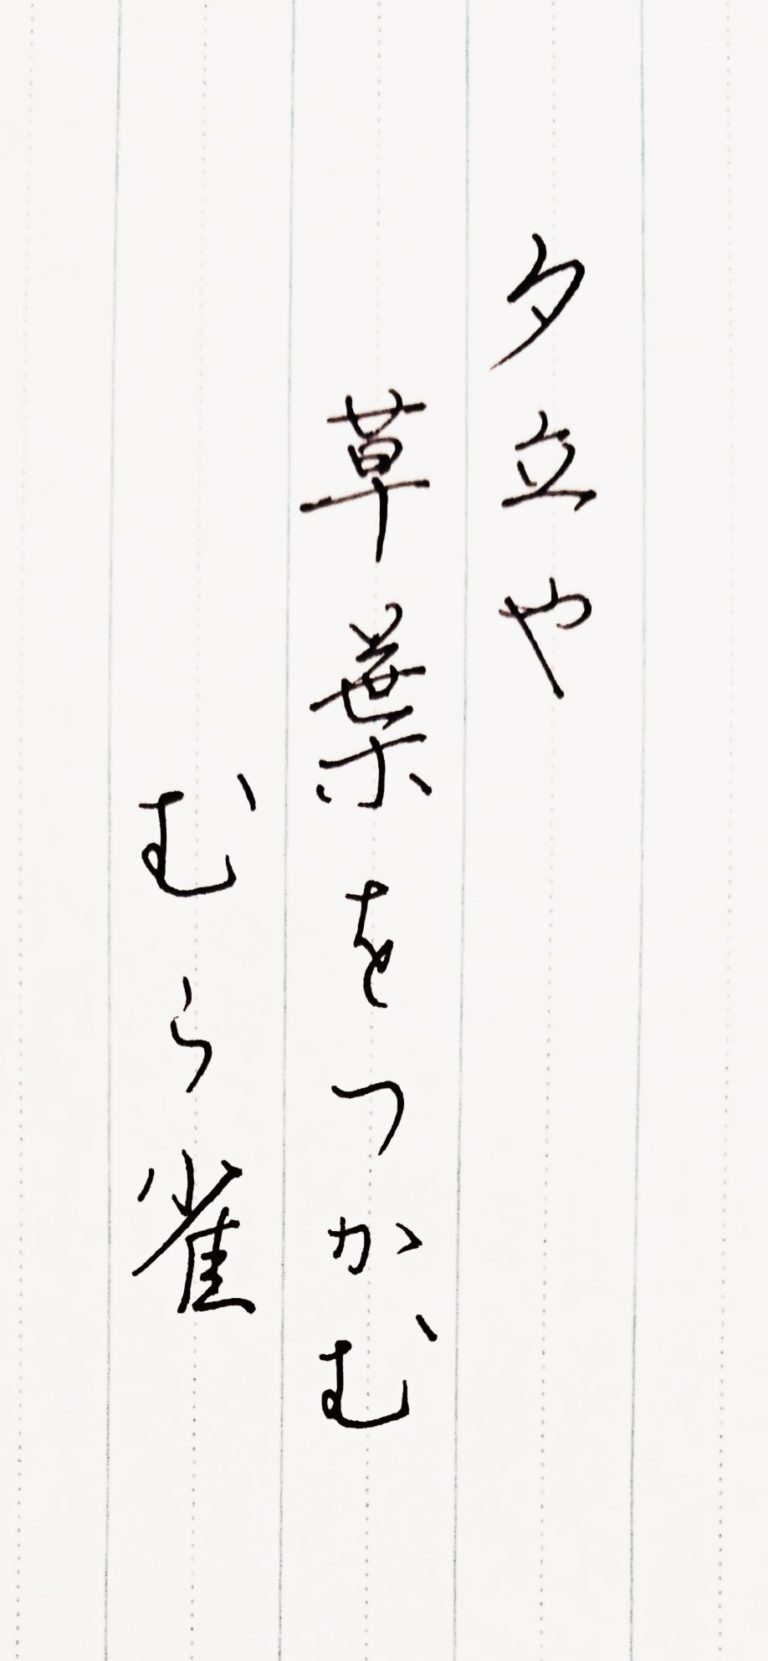 夕立や
草葉をつかむ
むら雀